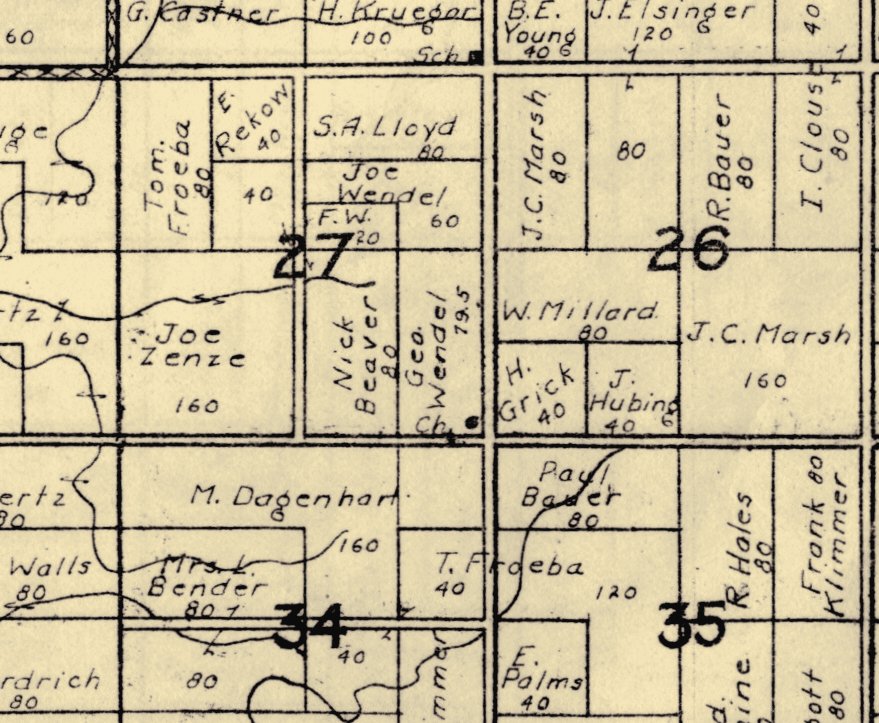 G. Castner
H. Krueger
100 6
Sch
B.E.
Young
40 6
J. Elsinger
120 6
40
60
1
1
80
120
Tom.
Froeba
80
E.
Rekow
40
40
S.A. Lloyd
80
Joe
Wendel
60
F.W.
20
27
J.C. Marsh
80
80
R. Bauer
80
I. Clouse
80
26
160
Joe
Zenze
160
Nick
Beaver
80
Geo.
Wendel
79.5
Ch.
W. Millard
80
H.
Grick
40
J.
Hubing
40 6
J.C. Marsh
160
80
M. Dagenhart
6
160
Paul
Bauer
80
R. Hales
80
Frank 80
Klimmer
Walls
80
Mrs. L.
Bender
80
T. Froeba
40
120
34
35
80
80
40
E.
Palms
40
80